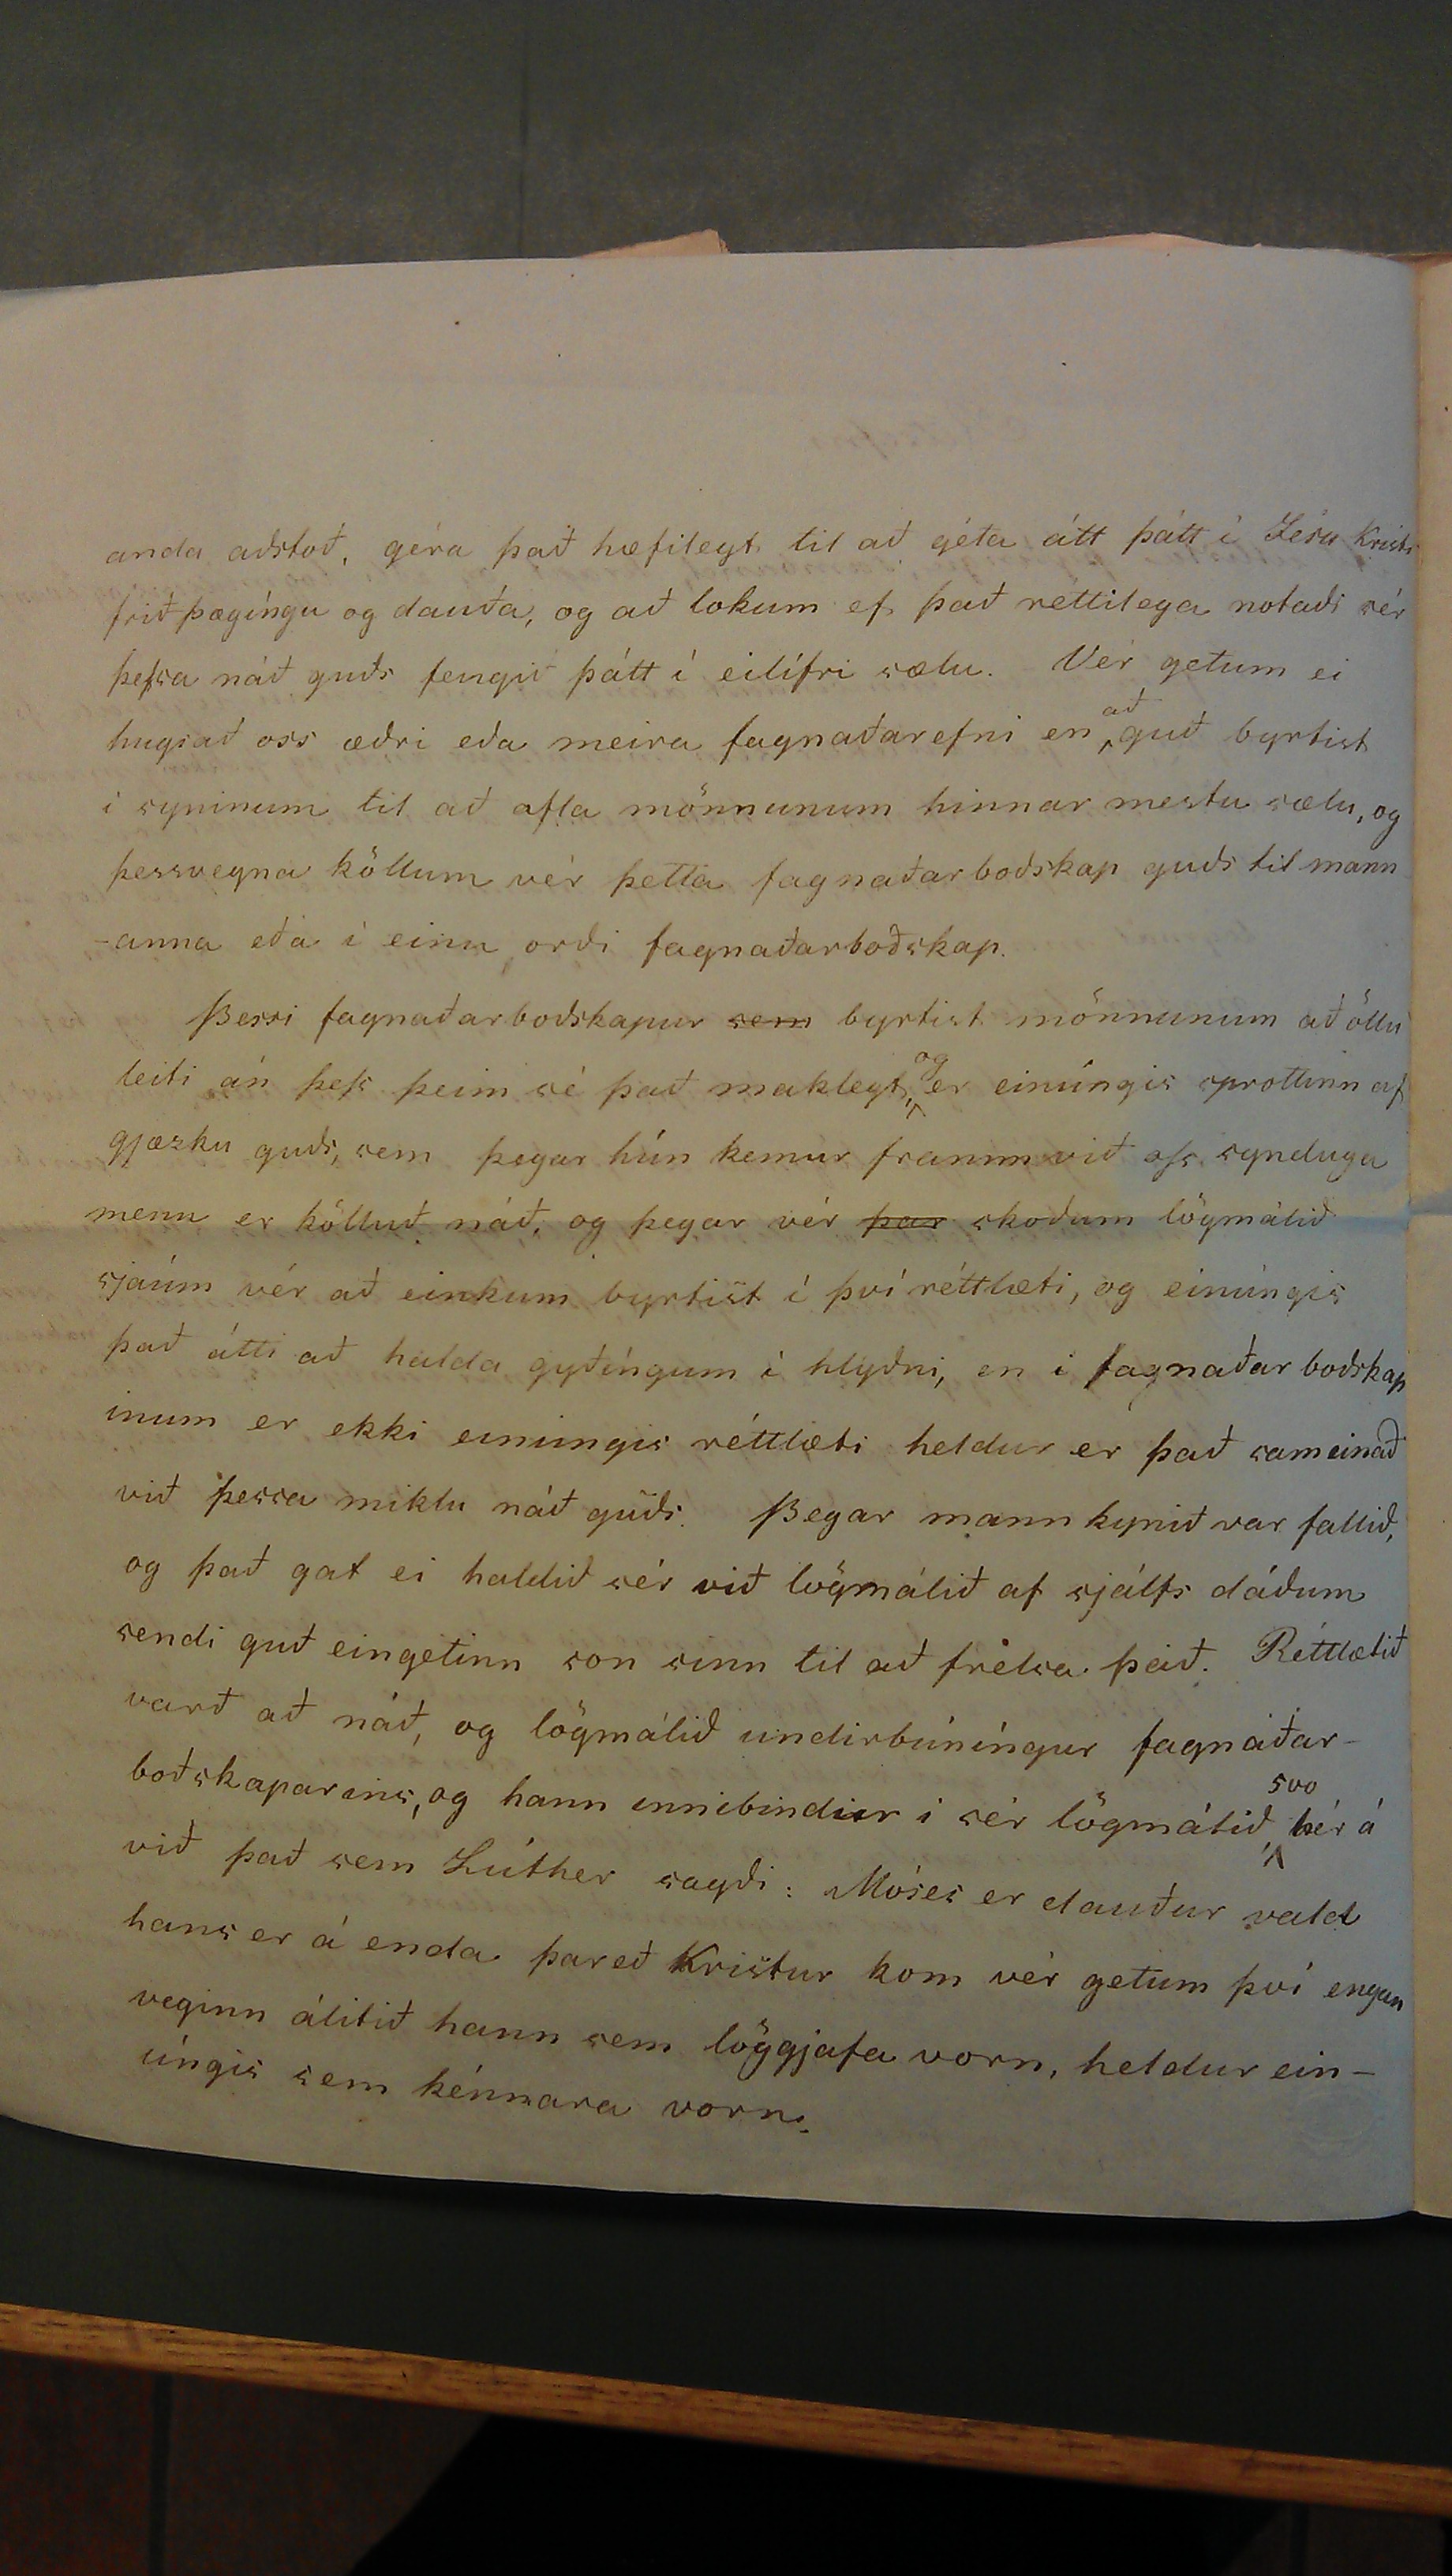 anda aðstoð, géra það hæfilegt til að géta átt þátt í Jésu Krists
friðþægíngu og dauða, og að lokum ef það réttilega notaði sér
þeſsa náð guðs fengið þátt í eilífri sælu. Vér getum ei
hugsað oss æðri eða meira fagnaðarefni en að guð byrtist
í syninum til að afla mönnunum hinnar mestu sælu, og
þessvegna köllum vér þetta fagnaðarboðskap guðs til mann
-anna eða í einu orði fagnaðarboðskap.
Þessi fagnaðarboðskapur sem byrtist mönnunum að öllu
leiti án þeſs þeim sé það maklegt, og er einúngis sprottinn af
gjæzku guðs, sem þegar hún kemur framm við oſs synduga
menn er kölluð náð, og þegar vér þar skoðum lögmálið
sjáum vér að einkum byrtist í því réttlæti, og einúngis
það átti að halda gyðíngum í hlyðni, en i fagnaðar boðskap
inum er ekki einungis réttlæti heldur er það sameinað
við þessa miklu náð guðs. Þegar mannkynið var fallið,
og það gat ei haldið sér við lögmálið af sjálfs dáðum
sendi guð eingetinn son sinn til að frelsa það. Réttlætið
varð að náð, og lögmálið undirbúníngur fagnaðar-
boðskaparins, og hann innibindur i sér lögmálið, svo hér á
við það sem Lúther sagði: Móses er dauður vald
hans er á enda þareð Kristur kom vér getum því engan
veginn álitið hann sem löggjafa vorn, heldur ein-
úngis sem kénnara vorn.